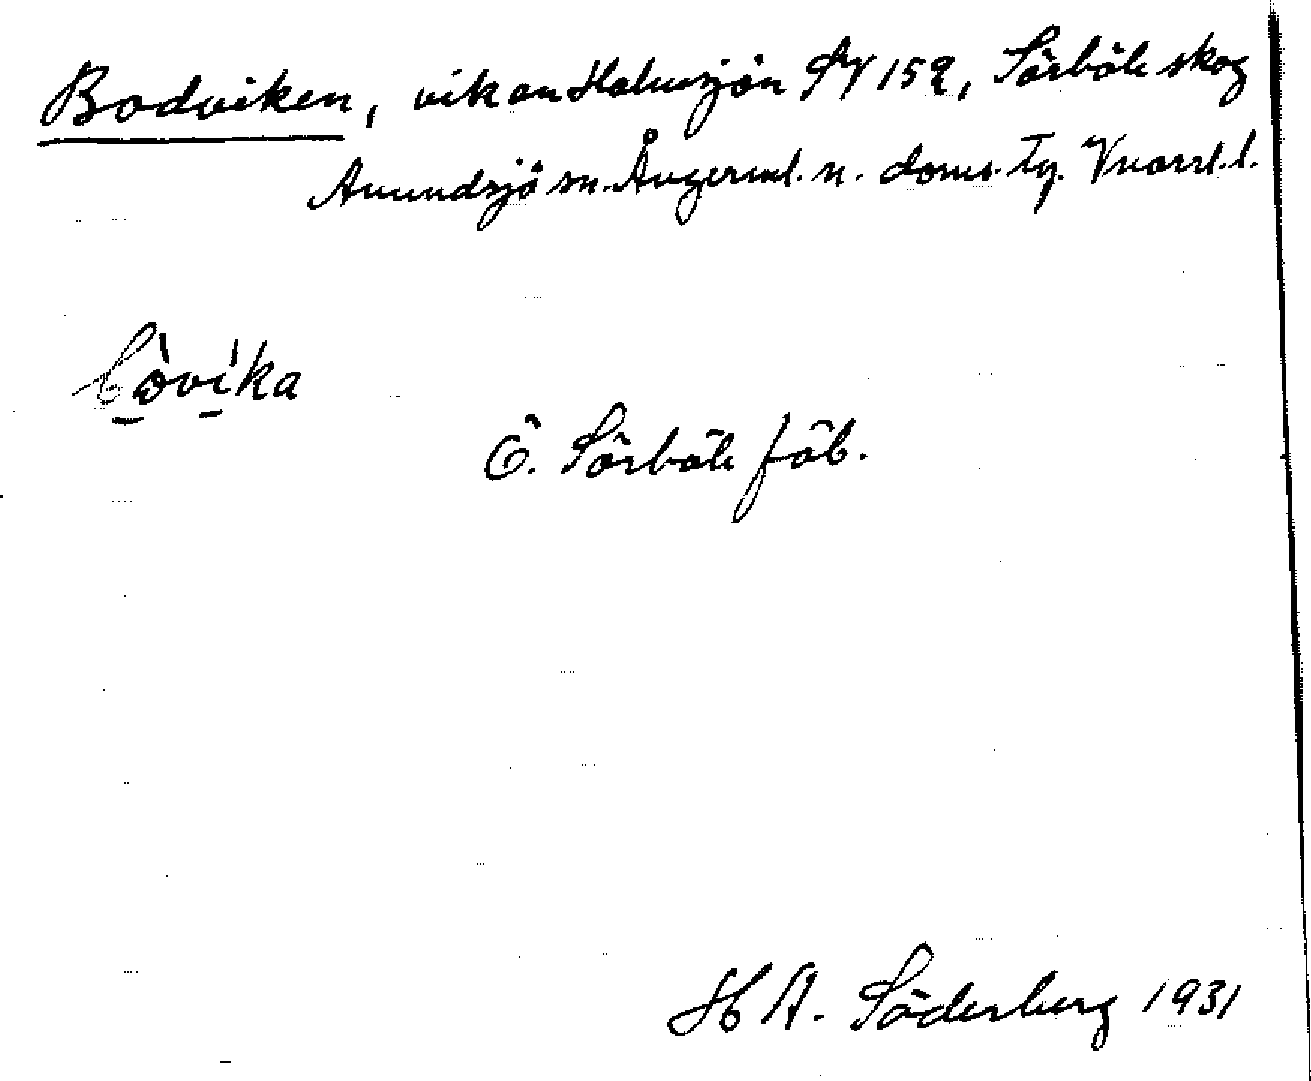 Bodviken, vik av Holmsjön SV 152, Sörböle skog
Anundsjö sn. Ångerml. n. doms. Tg. Vnorrl. l.
bòvíka
Ö. Sörböle fäb.
H A. Söderberg 1931